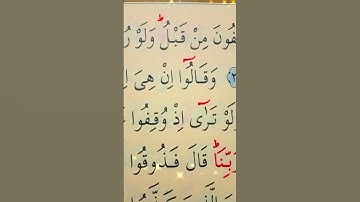 فُوۡنَ مِنۡ قَبۡلُ ؕ وَلَوۡ رُ
وَقَالُوۡۤا اِنۡ هِىَ اِ
لَوۡ تَرٰٓى اِذۡ وُقِفُوۡا
رَبِّنَا ؕ قَالَ فَذُوۡقُوا